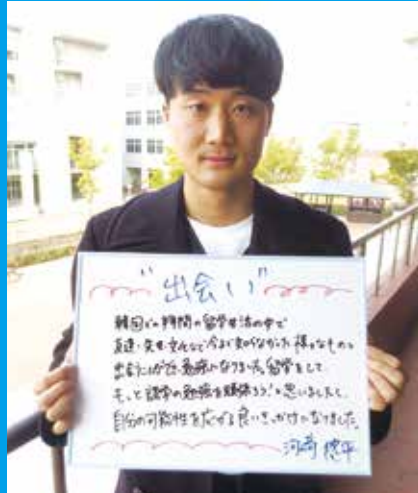 "出会い"
韓国での 期間の留学生活の中で
友達・文化など今まで知らなかった 様々なものと
出会うことができ、勉強になりました。留学をして
もっと語学の勉強を頑張ろう!と思いましたし
自分の可能性を広げる良いきっかけになりました。
河崎 平